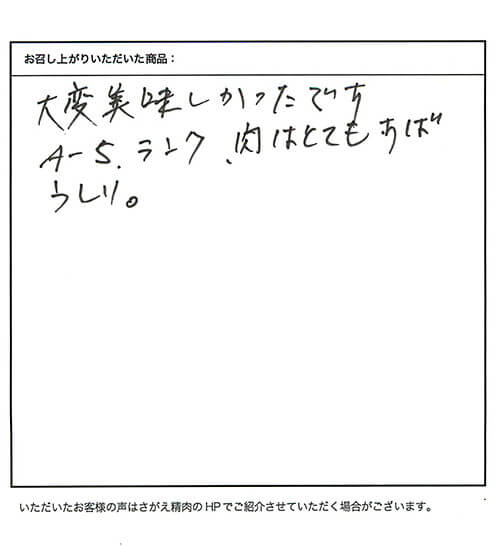 お召し上がりいただいた商品：
大変美味しかったです
A-5.ランク、肉はとてもすば
らしい。
いただいたお客様の声はさがえ精肉のHPでご紹介させていただく場合がございます。